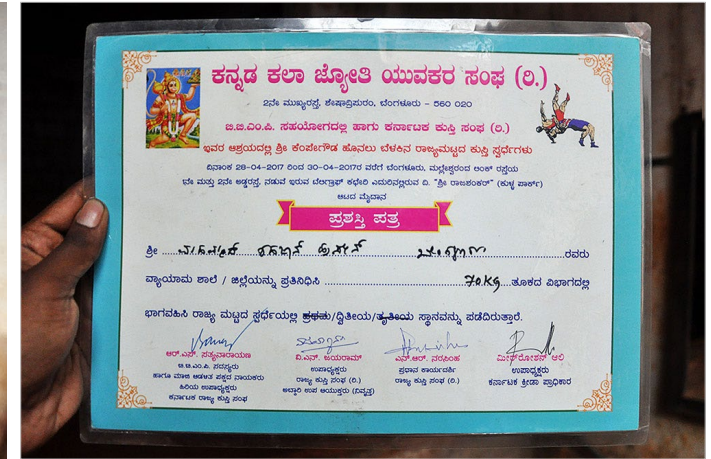 ಕನ್ನಡ ಕಲಾ ಜ್ಯೋತಿ ಯುವಕರ ಸಂಘ (ರಿ.)
2ನೇ ಮುಖ್ಯರಸ್ತೆ, ಶೇಷಾದ್ರಿಪುರಂ, ಬೆಂಗಳೂರು - 560 020
ಬಿ.ಬಿ.ಎಂ.ಪಿ. ಸಹಯೋಗದಲ್ಲಿ ಹಾಗು ಕರ್ನಾಟಕ ಕುಸ್ತಿ ಸಂಘ (ರಿ.)
ಇವರ ಆಶ್ರಯದಲ್ಲಿ ಶ್ರೀ ಕೆಂಪೇಗೌಡ ಹೊನಲು ಬೆಳಕಿನ ರಾಜ್ಯಮಟ್ಟದ ಕುಸ್ತಿ ಸ್ಪರ್ಧೆಗಳು
ದಿನಾಂಕ 28-04-2017 ರಿಂದ 30-04-2017ರ ವರೆಗೆ ಬೆಂಗಳೂರು, ಮಲ್ಲೇಶ್ವರಂ ಲಿಂಕ್ ರಸ್ತೆಯ
1ನೇ ಮತ್ತು 2ನೇ ಅಡ್ಡರಸ್ತೆ, ನಡುವೆ ಇರುವ ಟೆಲಿಗ್ರಾಫ್ ಕಛೇರಿ ಎದುರಿನಲ್ಲಿರುವ ದಿ. "ಶ್ರೀ ರಾಜಶಂಕರ್" (ಕುಳ್ಳ ಪಾರ್ಕ್)
ಆಟದ ಮೈದಾನ
ಪ್ರಶಸ್ತಿ ಪತ್ರ
ಶ್ರೀ ರವರು
ವ್ಯಾಯಾಮ ಶಾಲೆ / ಜಿಲ್ಲೆಯನ್ನು ಪ್ರತಿನಿಧಿಸಿ 70KG ತೂಕದ ವಿಭಾಗದಲ್ಲಿ
ಭಾಗವಹಿಸಿ ರಾಜ್ಯ ಮಟ್ಟದ ಸ್ಪರ್ಧೆಯಲ್ಲಿ ಪ್ರಥಮ/ದ್ವಿತೀಯ/ತೃತೀಯ ಸ್ಥಾನವನ್ನು ಪಡೆದಿರುತ್ತಾರೆ.
ಆರ್.ಎಸ್. ಸತ್ಯನಾರಾಯಣ
ಬಿ.ಬಿ.ಎಂ.ಪಿ. ಸದಸ್ಯರು
ಹಾಗೂ ಮಾಜಿ ಆಡಳಿತ ಪಕ್ಷದ ನಾಯಕರು
ಹಿರಿಯ ಉಪಾಧ್ಯಕ್ಷರು
ಕರ್ನಾಟಕ ರಾಜ್ಯ ಕುಸ್ತಿ ಸಂಘ
ಬಿ.ಎನ್. ಜಯರಾಮ್
ಉಪಾಧ್ಯಕ್ಷರು
ರಾಜ್ಯ ಕುಸ್ತಿ ಸಂಘ (ರಿ.)
ಅಬ್ಕಾರಿ ಉಪ ಆಯುಕ್ತರು (ನಿವೃತ್ತ)
ಎನ್.ಆರ್. ನರಸಿಂಹ
ಪ್ರಧಾನ ಕಾರ್ಯದರ್ಶಿ
ರಾಜ್ಯ ಕುಸ್ತಿ ಸಂಘ (ರಿ.)
ಮೀರ್‌ರೋಶನ್ ಅಲಿ
ಉಪಾಧ್ಯಕ್ಷರು
ಕರ್ನಾಟಕ ಕ್ರೀಡಾ ಪ್ರಾಧಿಕಾರ